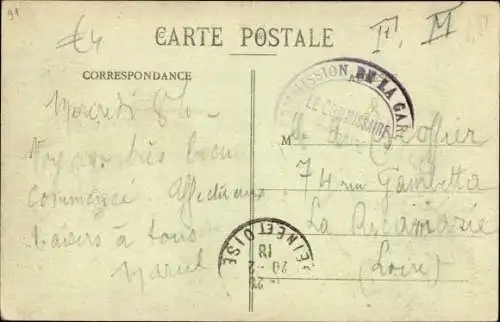 91
€4
CARTE POSTALE
F. M
CORRESPONDANCE
COMMISSION DE LA GARE
LE COMMISSAIRE
Mercredi 8h
Voyage très bien
commencé. Affectueux
baisers à tous
Marcel
M
74 rue Gambetta
La Ricamarie
(Loire)
SEINE ET OISE
20-2
18